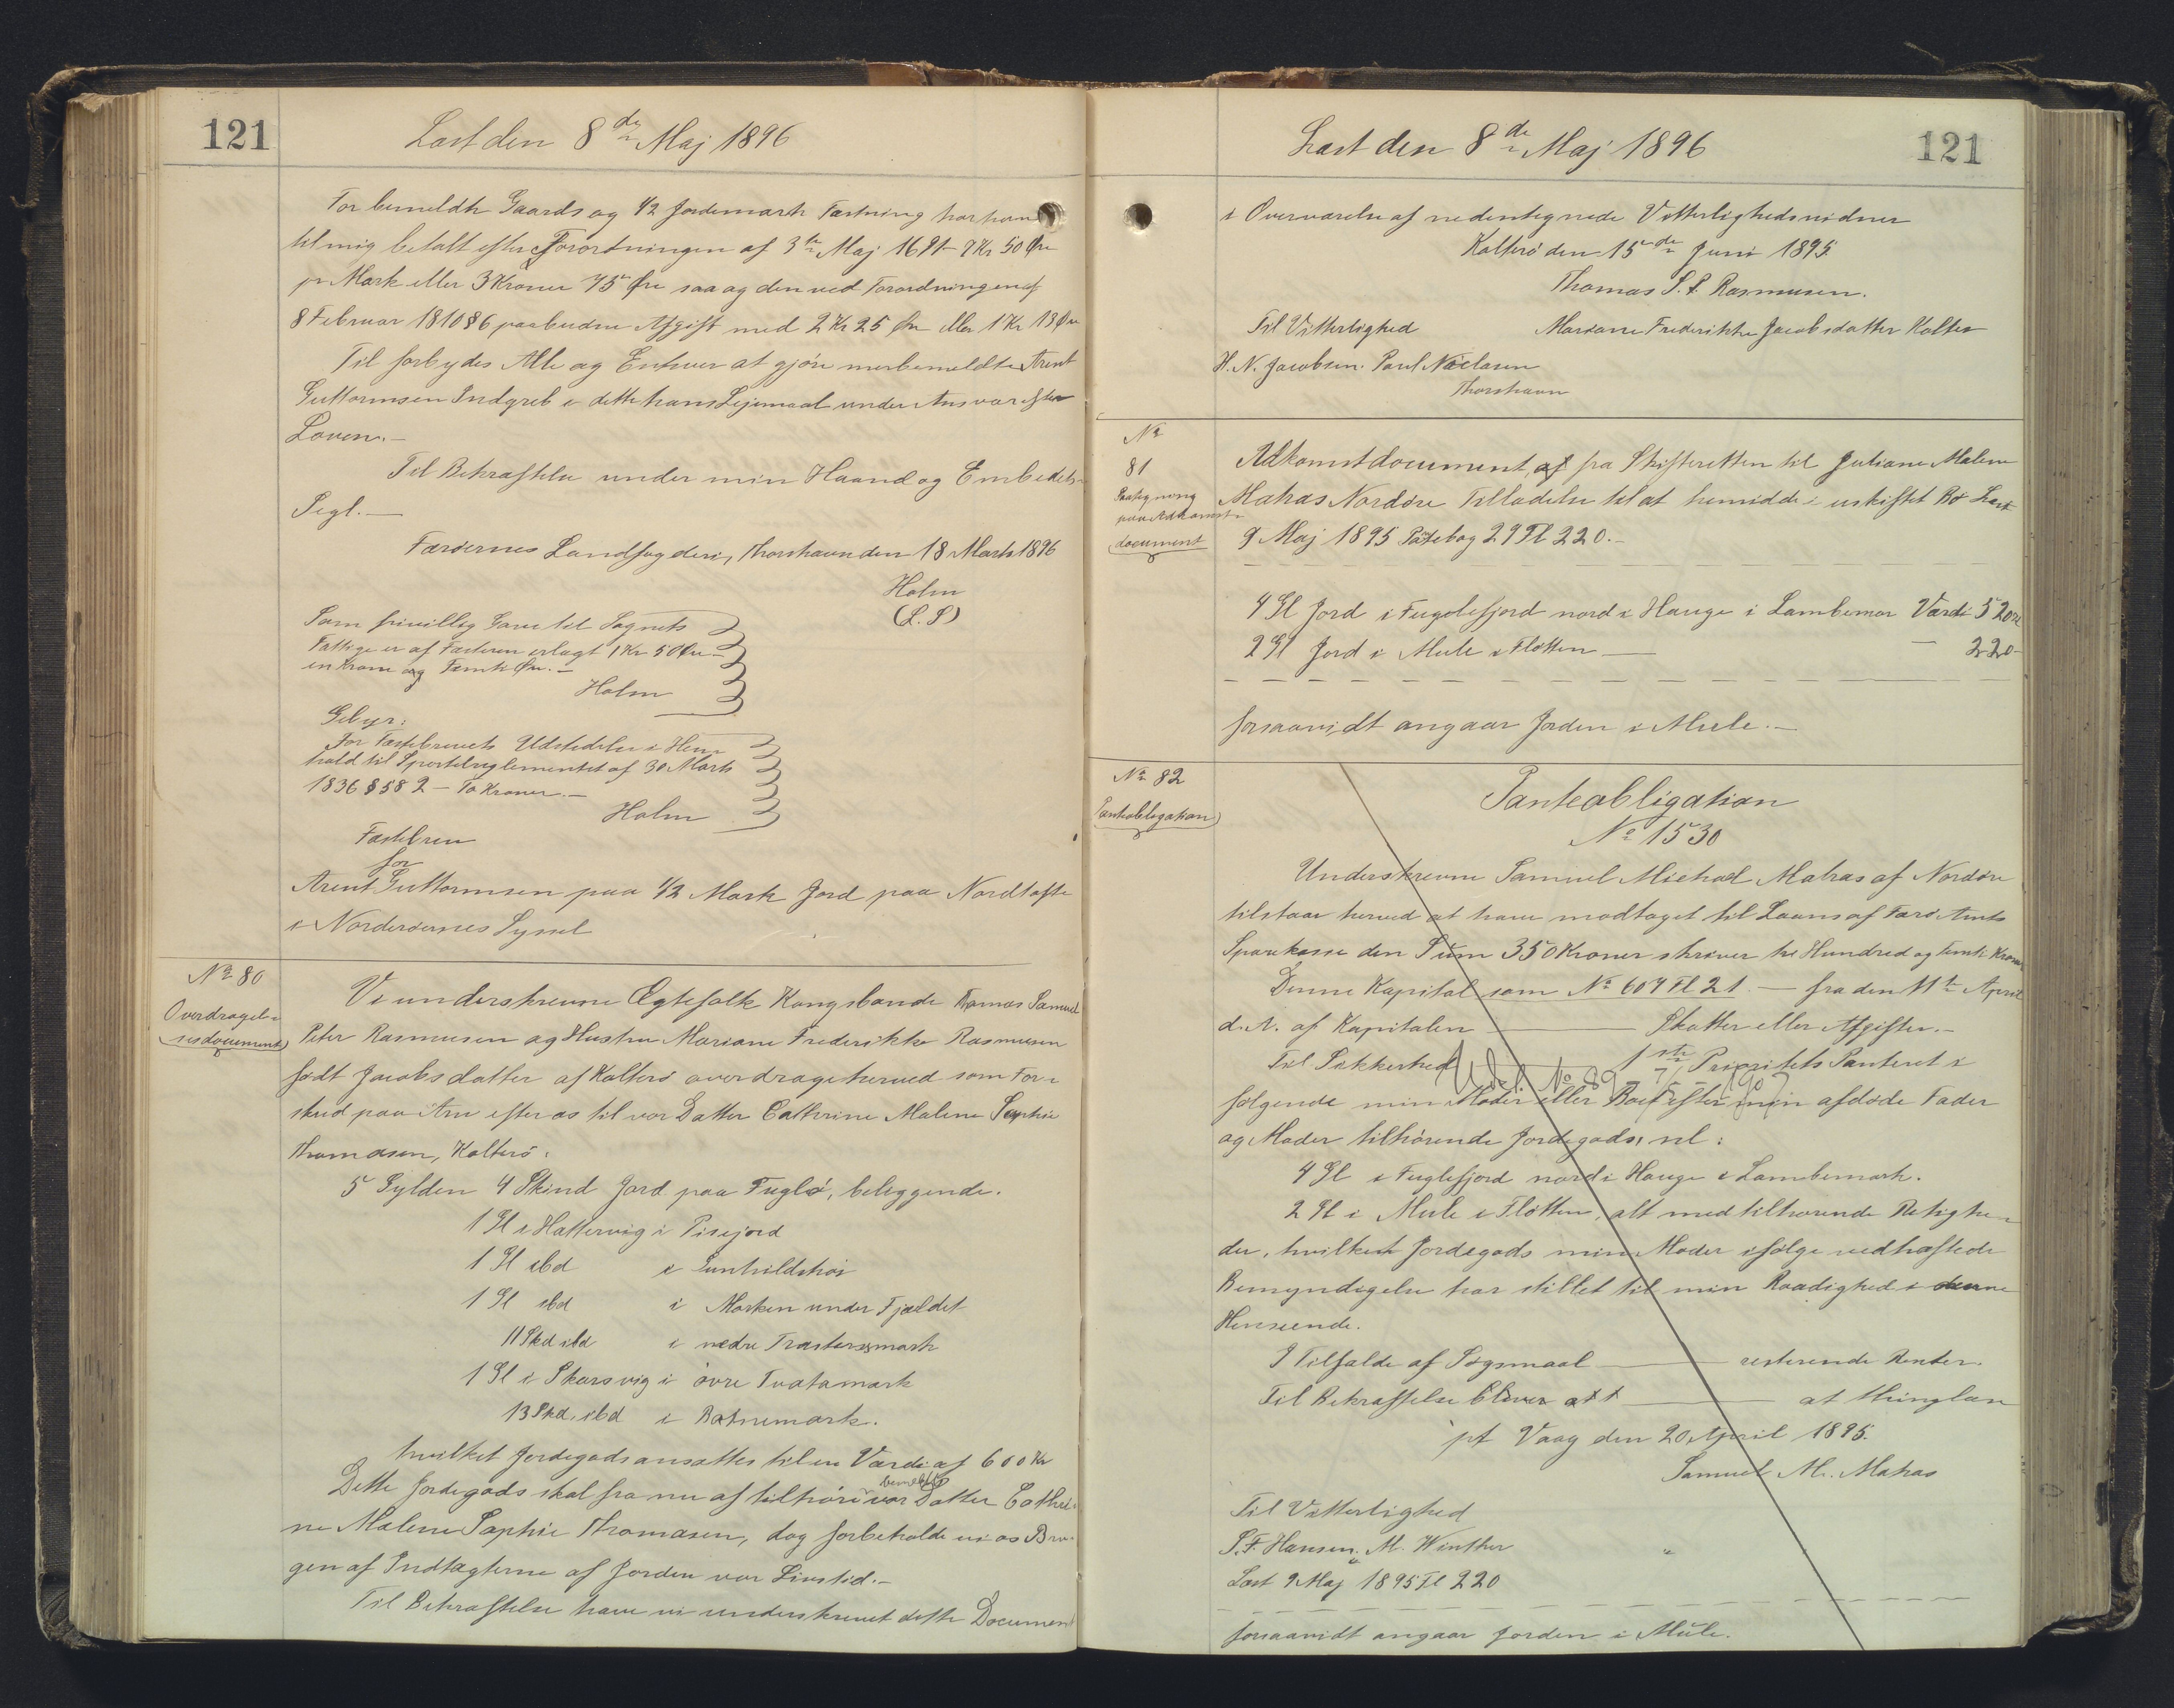 121
Læst den 8de Maj 1896
For bemeldte Gaards og 1/2 Jordemark Fæstning har han
til mig betalt efter Forordningen af 3die Maj 1691 7 Kr 50 Øre
pr Mark eller 3 Kroner 75 Øre saa og den ved Forordningen af
8 Februar 1810 § 6 paabudne Afgift med 2 Kr 25 Øre eller 1 Kr 13 Øre
Til forbydes Alle og Enhver at gjøre merbemeldte Arent
Guttormsen Indgreb i dette hans Lejemaal under Ansvar efter
Loven.—
Til Bekræftelse under min Haand og Embeds-
Segl.—
Færøernes Landfogderi, Thorshavn den 18 Marts 1896
Holm
(L.S)
Som frivillig Gave til Sognets
Fattige er af Fæsteren erlagt 1 Kr 50 Øre—
en Krone og Femti Øre.—
Holm
Gebyr:
For Fæstebrevets Udstedelse i Hen-
hold til Sportelreglementet af 30 Marts
1836 § 58 2 — To Kroner.—
Holm
Fæstebrev
for
Arent Guttormsen paa 1/2 Mark Jord paa Nordtofte
i Norderøernes Syssel
No 80
Overdragel-
sesdocument
Vi underskrevne Ægtefolk Kongsbonde Thomas Samuel
Peter Rasmusen og Hustru Mariane Frederikke Rasmusen
født Jacobsdatter af Kolterø overdrage herved som For-
skud paa Arv efter os til vor Datter Cathrine Malene Sophie
Thomasen, Kolterø:
5 Gylden 4 Skind Jord paa Fuglø, beliggende.
1 Gl i Hattervig i Pisejord
1 Gl ibd i Gunhildshøi
1 Gl ibd i Marken under Fjældet
11 Skd ibd i nedre Trøstersmark
1 Gl i Skarsvig i øvre Tvatamark
13 Skd. ibd i Botnemark.
hvilket Jordegods ansættes til en Værdi af 600 Kr
Dette Jordegods skal fra nu af tilhøre bemeldte vor Datter Cathri-
ne Malene Sophie Thomasen, dog forbeholde vi os Bru-
gen af Indtægterne af Jorden vor Livstid.—
Til Bekræftelse have vi underskrevet dette Document
Læst den 8de Maj 1896
121
i Overværelse af nedentegnede Vitterlighedsvidner
Kolterø den 15de Juni 1895.
Thomas S. P. Rasmusen.
Til Vitterlighed Mariane Frederikke Jacobsdatter Kolter
H. N. Jacobsen. Poul Nielasen
Thorshavn
No
81
Paategning
paa Adkomst-
document
Adkomstdocument, af fra Skifteretten til Juliane Malene
Matras Nordøre Tilladelse til at hensidde i uskiftet Bo Læst
9 Maj 1895 Pøtebog 29 Fl 220.—
4 Gl Jord i Fuglefjord nord i Hauge i Lambemor Værdi 520 Kr
2 Gl Jord i Mule i Fløtten — — 220—
forsaavidt angaar Jorden i Mule.—
No 82
Panteobligation
Panteobligation
No 1530
Underskrevne Samuel Michael Matras af Nordøre
tilstaar herved at have modtaget til Laans af Færø Amts
Sparekasse den Sum 350 Kroner skriver tre Hundred og femti Kroner
Denne Kapital som No 607 Fl 21 — fra den 11te April
d. A. af Kapitalen — Skatter eller Afgifter.—
Til Sikkerhed — 1ste Prioritets Panteret i
Udsl. No 89 7/ 1907
følgende min Moder eller Boet efter min afdøde Fader
og Moder tilhørende Jordegods, nl:
4 Gl i Fuglefjord nord i Hauge i Lambemark.
2 Gl i Mule i Fløtten, alt med tilhørende Rettighe-
der, hvilket Jordegods min Moder ifølge vedhæftede
Bemyndigelse har stillet til min Raadighed i denne
Henseende.
I Tilfælde af Søgsmaal — resterende Renter.
Til Bekræftelse bliver at — at thinglæse
pt Vaag den 20 April 1895.
Samuel M. Matras
Til Vitterlighed
S. F. Hansen. M. Winther
Læst 9 Maj 1895 Fl 220
forsaavidt angaar Jorden i Mule.